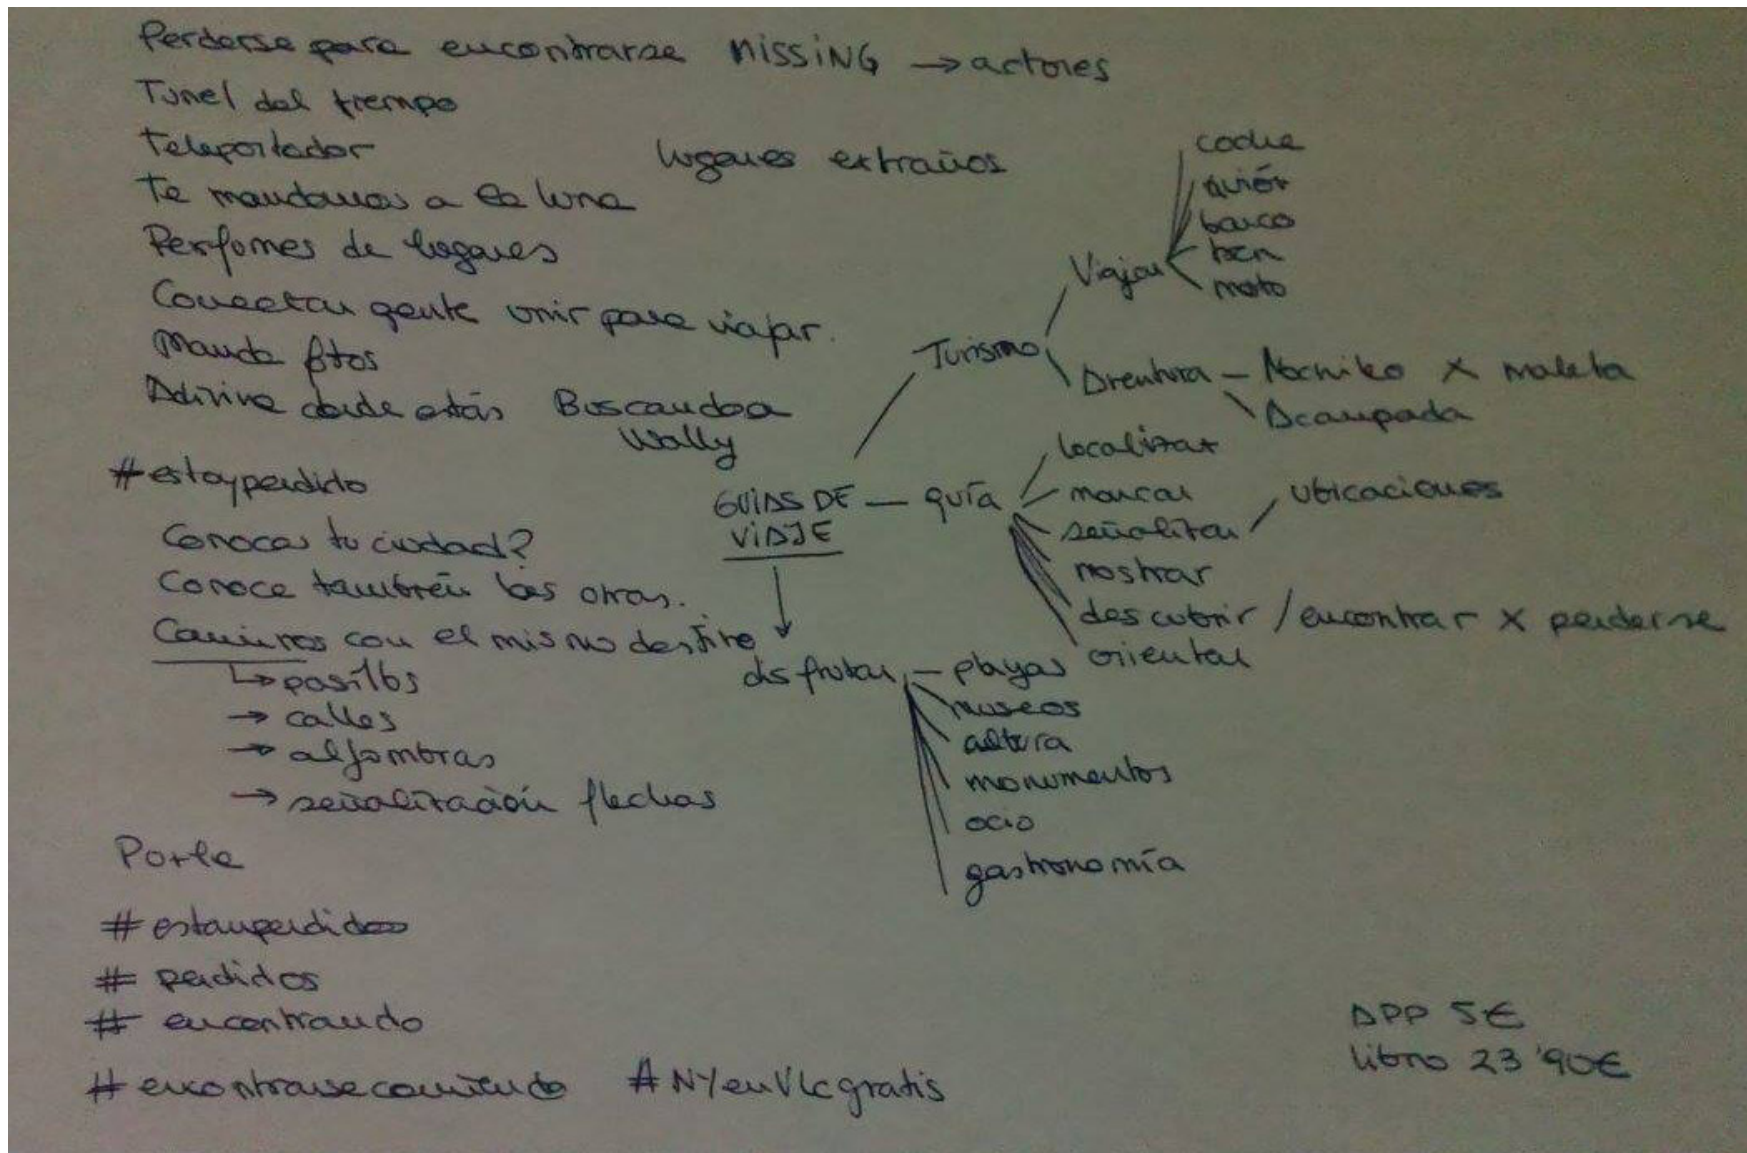 Perderse para encontrarse MISSING → actores
Tunel del tiempo
Teleportador
lugares extraños
Te mandamos a la luna
Perfumes de lugares
Conectar gente unir para viajar.
Manda fotos
Adivina donde estás Buscando a
Wally
#estoyperdido
Conoces tu ciudad?
Conoce también las otras.
Caminos con el mismo destino
↳ pasillos
→ calles
→ alfombras
→ señalización flechas
Porla
#estanperdidos
# perdidos
# encontrando
# encontrarsecomiendo #NYenVlcgratis
GUIAS DE
VIAJE
Turismo
Viajar
coche
avión
barco
tren
moto
Aventura – Mochila X maleta
Acampada
guía
localizar
marcar
señalizar / ubicaciones
mostrar
descubrir / encontrar X perderse
orientar
disfrutar – playas
museos
altura
monumentos
ocio
gastronomía
APP 5€
libro 23'90€